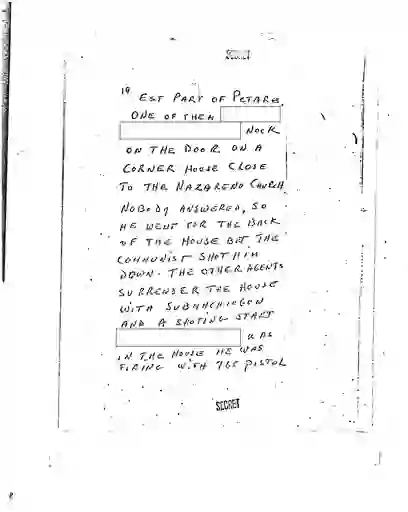 SECRET
19
EST PART OF PETARE.
ONE OF THEM
NOCK
ON THE DOOR ON A
CORNER HOUSE CLOSE
TO THE NAZARENO CHURCH.
NOBODY ANSWERED, SO
HE WENT FOR THE BACK
OF THE HOUSE BUT THE
COMMUNIST SHOT HIM
DOWN. THE OTHER AGENTS
SURRENDER THE HOUSE
WITH SUBMACHINGUN
AND A SHOTING START
WAS
IN THE HOUSE HE WAS
FIRING WITH 765 PISTOL
SECRET